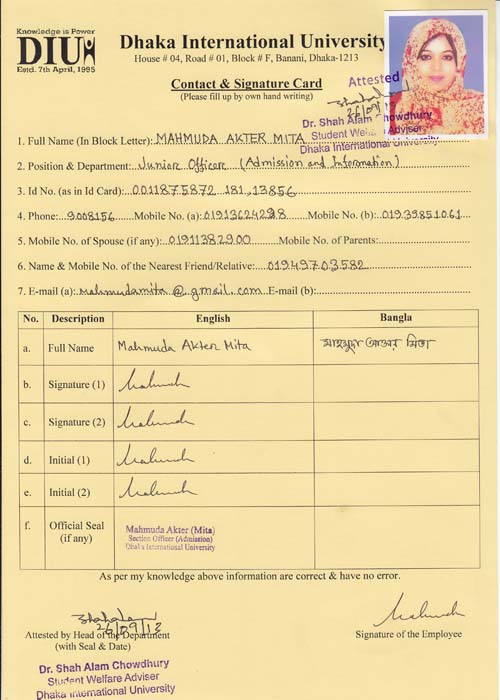 Knowledge is Power
DIU
Estd. 7th April, 1995
Dhaka International University
House # 04, Road # 01, Block # F, Banani, Dhaka-1213
Contact & Signature Card
(Please fill up by own hand writing)
Attested
26/09/13
Dr. Shah Alam Chowdhury
Student Welfare Adviser
Dhaka International University
1. Full Name (In Block Letter): MAHMUDA AKTER MITA
2. Position & Department: Junior Officer (Admission and Information)
3. Id No. (as in Id Card): 0011875872 181,13856
4. Phone: 9008156 Mobile No. (a): 01913624298 Mobile No. (b): 01939851061
5. Mobile No. of Spouse (if any): 01911382900 Mobile No. of Parents:
6. Name & Mobile No. of the Nearest Friend/Relative: 01949703582
7. E-mail (a): mahmudamita@gmail.com E-mail (b):
No. Description English Bangla
a. Full Name Mahmuda Akter Mita মাহমুদা আক্তার মিতা
b. Signature (1) Mahmuda
c. Signature (2) Mahmuda
d. Initial (1) Mahmuda
e. Initial (2) Mahmuda
f. Official Seal (if any)
Mahmuda Akter (Mita)
Section Officer (Admission)
Dhaka International University
As per my knowledge above information are correct & have no error.
26/09/13
Attested by Head of the Department
(with Seal & Date)
Mahmuda
Signature of the Employee
Dr. Shah Alam Chowdhury
Student Welfare Adviser
Dhaka International University